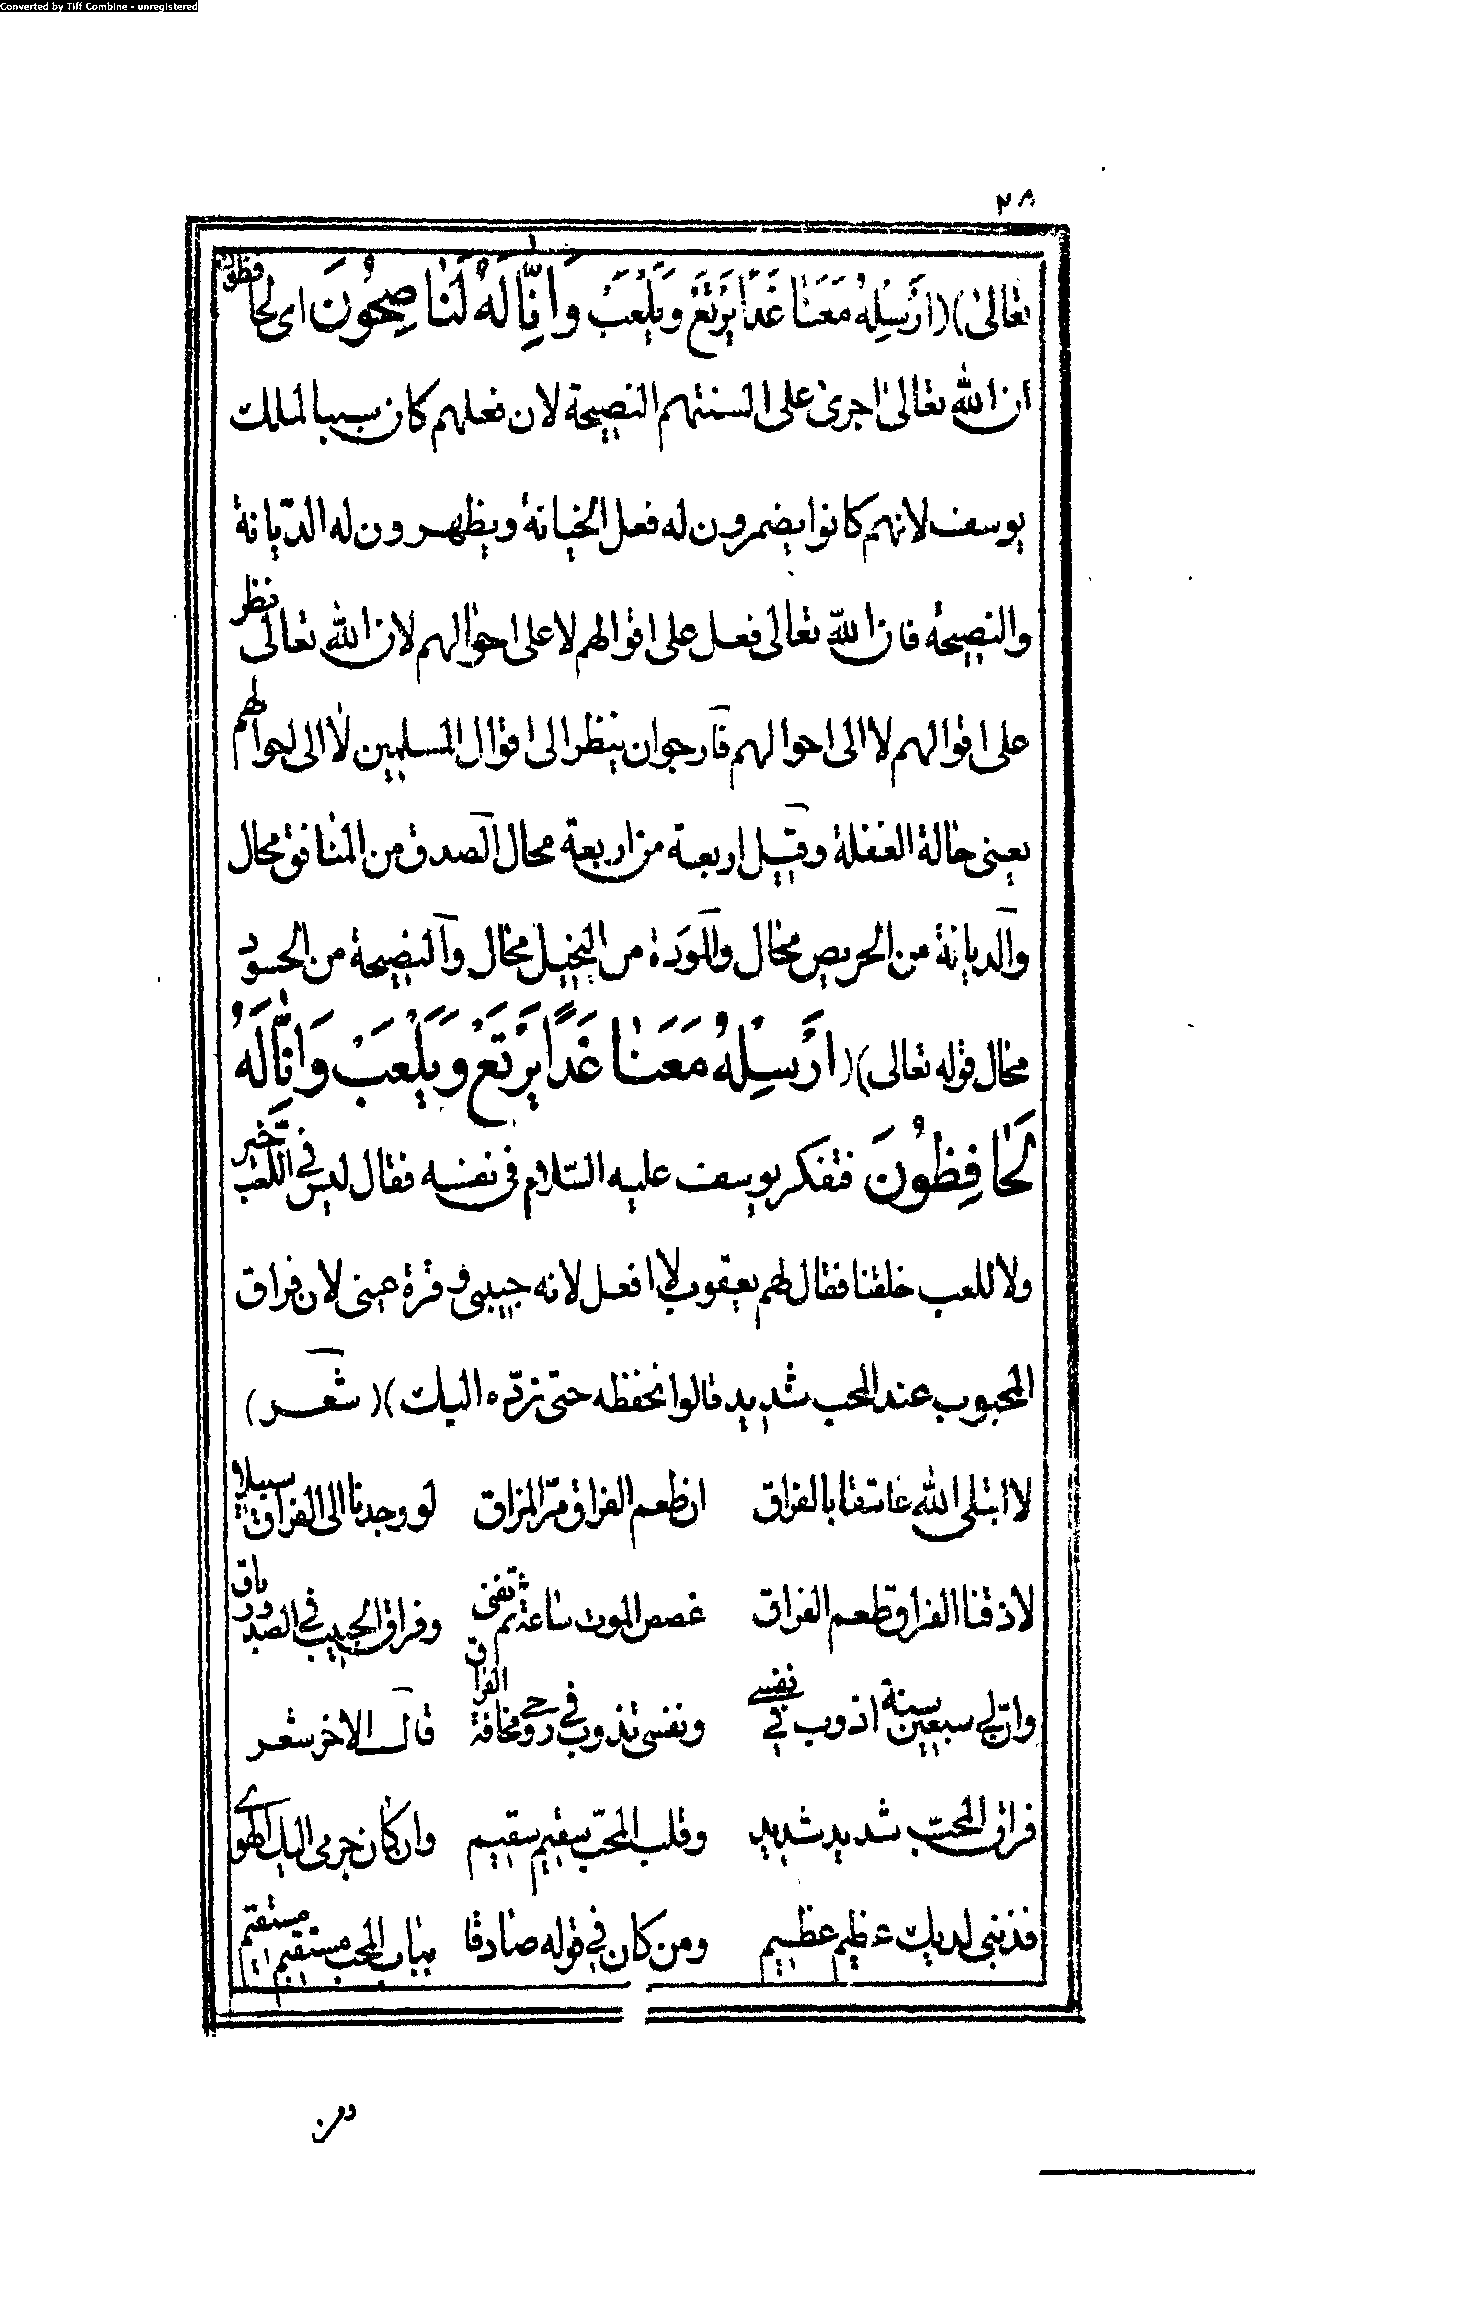 Converted by Tiff Combine - unregistered
٢٨
تعالى)(اَرْسِلْهُ مَعَنَا غَدًا يَرْتَعْ وَيَلْعَبْ وَاِنَّا لَهُ لَنَاصِحُونَ اى لحافظون
ان الله تعالى اجرى على السنتهم النصيحة لان فعلهم كان سببا لملك
يوسف لانهم كانوا يضمرون له فعل الخيانة ويظهرون له الديّانة
والنصيحة فان الله تعالى فعل على اقوالهم لا على احوالهم لان الله تعالى نظر
على اقوالهم لا الى احوالهم فارجوان ينظر الى اقوال المسلمين لا الى احوالهم
يعنى حالة الغفلة وقيل اربعة من اربعة محال الصدق من المنافق محال
والديانة من الحريص محال والمودة من البخيل محال والنصيحة من الحسود
محال قوله تعالى)(اَرْسِلْهُ مَعَنَا غَدًا يَرْتَعْ وَيَلْعَبْ وَاِنَّا لَهُ
لَحَافِظُونَ فتفكر يوسف عليه السّلام فى نفسه فقال ليس فى اللعب خير
ولا للعب خلقنا فقال لهم يعقوب لا افعل لانه حبيبى وقرة عينى لان فراق
المحبوب عند المحب شديد قالوا نحفظه حتى نردّه اليك)(شعر)
لا ابتلى الله عاشقا بالفراق ان طعم الفراق مرّ المزاق لو وجدنا الى الفراق سبيلا
لاذقنا الفراق طعم الفراق غصص الموت ساعة ثم تفنى وفراق الحبيب فى الصدور باق
وانّ لى سبعين سنة اذوب فى نفسى ونفسى تذوب فى روحى مخافة الفراق قال الاخر شعر
فراق المحبّ شديد شديد وقلب المحبّ سقيم سقيم وان كان جرمى اليك الهوى
فذنبى لديك عظيم عظيم ومن كان فى قوله صادقا بباب المحب مستقيم مستقيم